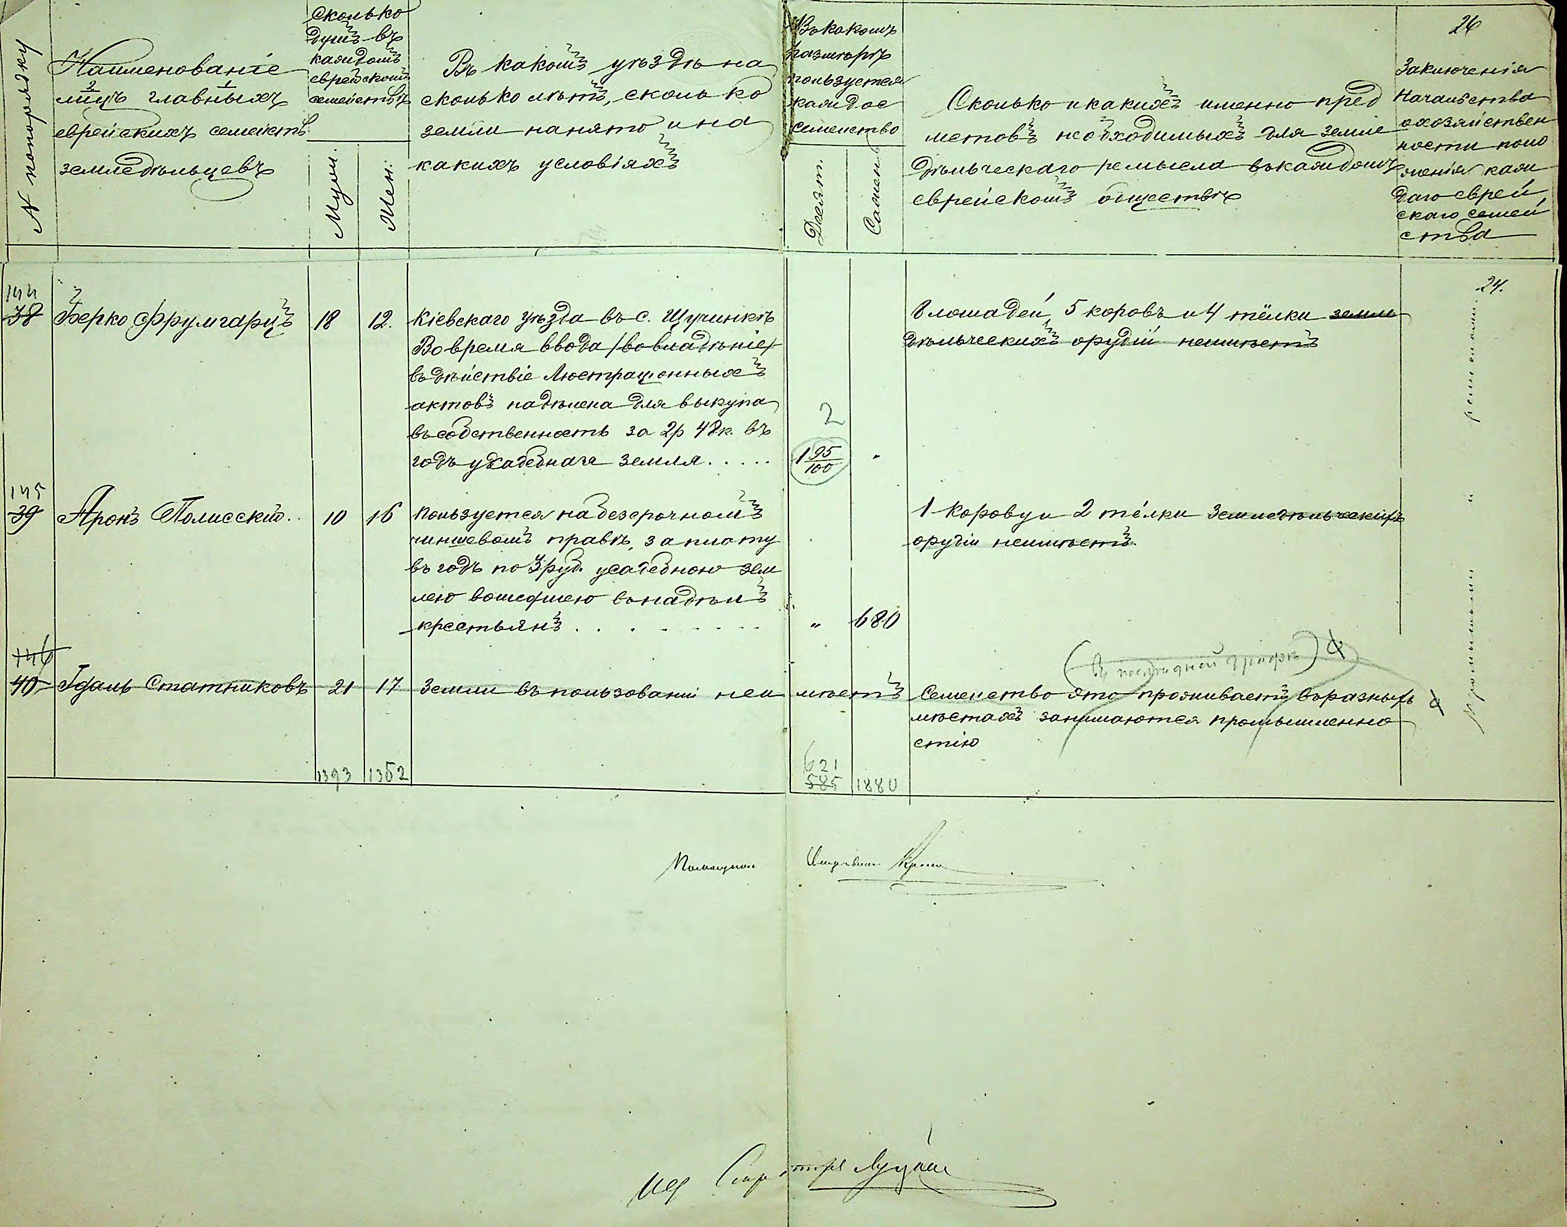 26
№ по порядку
Наименованіе
лицъ главныхъ
2 1
еврейскихъ семействъ
земледѣльцевъ
Сколько
душъ въ
каждомъ
еврейскомъ
семействѣ
Муж.
Жен.
Въ какомъ уѣздѣ на
сколько лѣтъ, сколько
земли нанято и на
какихъ условіяхъ
Въ какомъ
размѣрѣ
пользуется
каждое
семейство
Десят.
Сажень
Сколько и какихъ именно пред
метовъ необходимыхъ для земле
дѣльческаго ремысла въ каждомъ
еврейскомъ обществѣ
Заключенія
Начальства
о хозяйствен
ности поло
женія каж
даго еврей
скаго семей
ства
144
38
Берко Фрумгарцъ
18
12.
Кіевскаго уѣзда въ с. Щучинкѣ
Во время ввода /во владѣніе/
въ дѣйствіе Люстраціонныхъ
актовъ надѣлена для выкупа
въ собственность за 2р 48к. въ
годъ усадебная земля.....
2
1 95/100
"
6 лошадей, 5 коровъ и 4 тёлки земле
дѣльческихъ орудій неимѣетъ
24.
145
39
Аронъ Полисскій..
10
16
Пользуется на безсрочномъ
чиншевомъ правѣ, за плату
въ годъ по 3 руб. усадебною зем
лею вошедшею въ надѣлъ
крестьянъ . . . . . . . .
"
680
1 Корову и 2 тёлки Земледѣльческихъ
орудій неимѣетъ.
146
40
Гдаль Статниковъ
21
17
Земли въ пользованіи неи мѣетъ
(Въ послѣдней графѣ)
Семейство это проживаетъ въ разныхъ
мѣстахъ занимаются промышленно
стію
1393
1362
621
585
1880